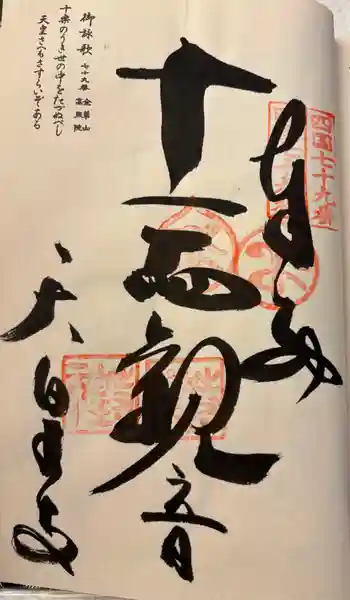 奉納
四国七十九番
十一面観音
天皇寺
御詠歌 七十九番 金華山 高照院
十楽のうき世の中をたづぬべし
天皇さへもさすらいぞある